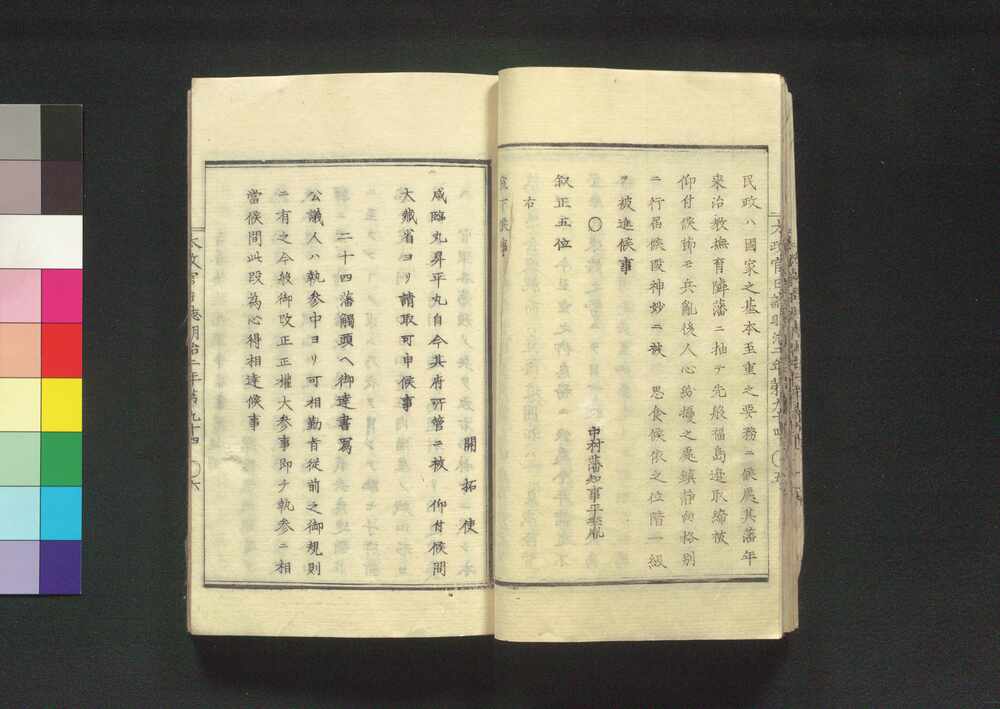 民政ハ國家之基本至重之要務ニ候處其藩年
来治教撫育隣藩ニ抽テ先般福島邊取締被
仰付候節モ兵亂後人心紛擾之處鎮静向格別
ニ行届候段神妙ニ被 思食候依之位階一級
ヲ被進候事
〇 中村藩知事平季胤
叙正五位
右
宣下候事
太政官日誌明治二年第九十四 〇五
開拓使
咸臨丸昇平丸自今其府所管ニ被 仰付候間
大藏省ヨリ請取可申候事
二十四藩觸頭ヘ御達書寫
公議人ハ執参中ヨリ可相勤旨従前之御規則
ニ有之今般御改正正權大参事即チ執参ニ相
當候間此段為心得相達候事
太政官日誌明治二年第九十四 〇六